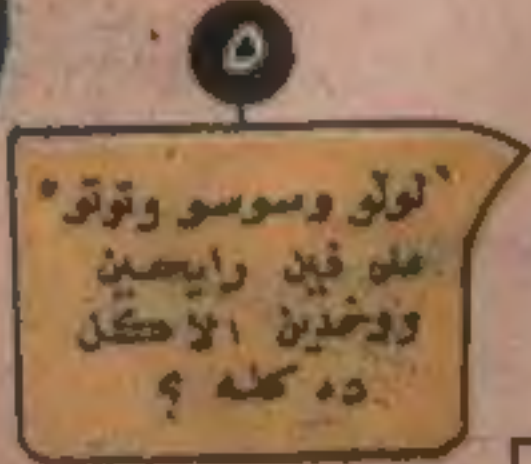 ٥
"لولو وسوسو وتوتو"
على فين رايحين
وواخدين الاكل
ده كله ؟